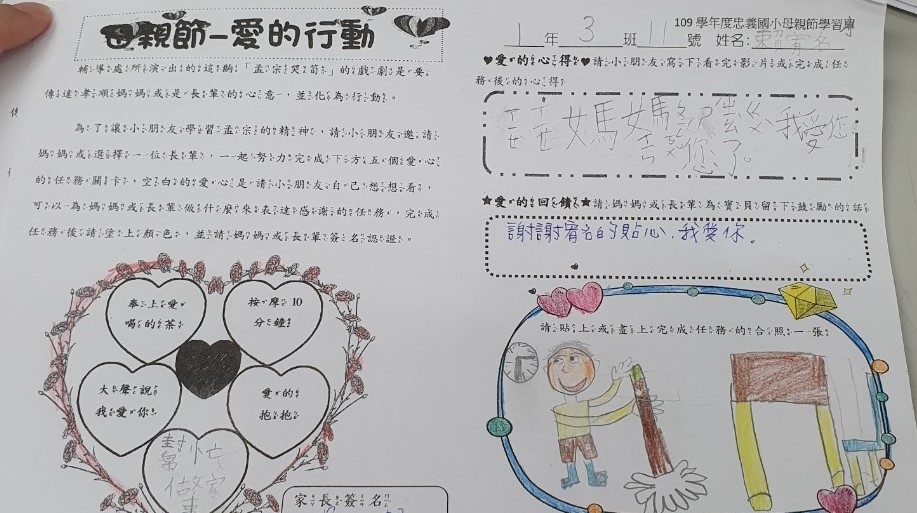 母親節－愛的行動
輔導處所演出的這齣「孟宗哭筍」的戲劇是要
傳達孝順媽媽或是長輩的心意，並化為行動。
為了讓小朋友學習孟宗的精神，請小朋友邀請
媽媽或選擇一位長輩，一起努力完成下方五個愛心
的任務關卡，空白的愛心是請小朋友自己想想看，
可以為媽媽或長輩做什麼來表達感謝的任務，完成
任務後請塗上顏色，並請媽媽或長輩簽名認證。
奉上愛心
喝的茶
按摩10
分鐘
大聲說
我愛你
愛的
抱抱
幫忙
做家
事
家長簽名
109學年度忠義國小母親節學習單
1年3班11號 姓名：
♥愛的心得♥請小朋友寫下看完影片或完成任
務後的心得
媽媽 我愛您
您了。
★愛的回饋★請媽媽或長輩為寶貝留下鼓勵的話
謝謝宥名的貼心，我愛你。
請貼上或畫上完成任務的合照一張